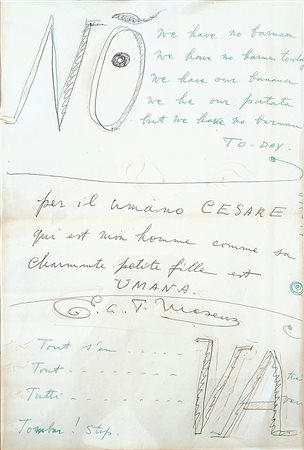 NO
We have no barman
We have no barman to-day
We have our banana
We be our patata
but we have no barman
TO-DAY.
per il umano CESARE
qui est mon homme comme sa
charmante petite fille est
UMANA.
E.L.T. Mesens
Tout s'en - - - - -
Tout - - - - -
Tutti - - - - -
Tombar! Stop.
VA